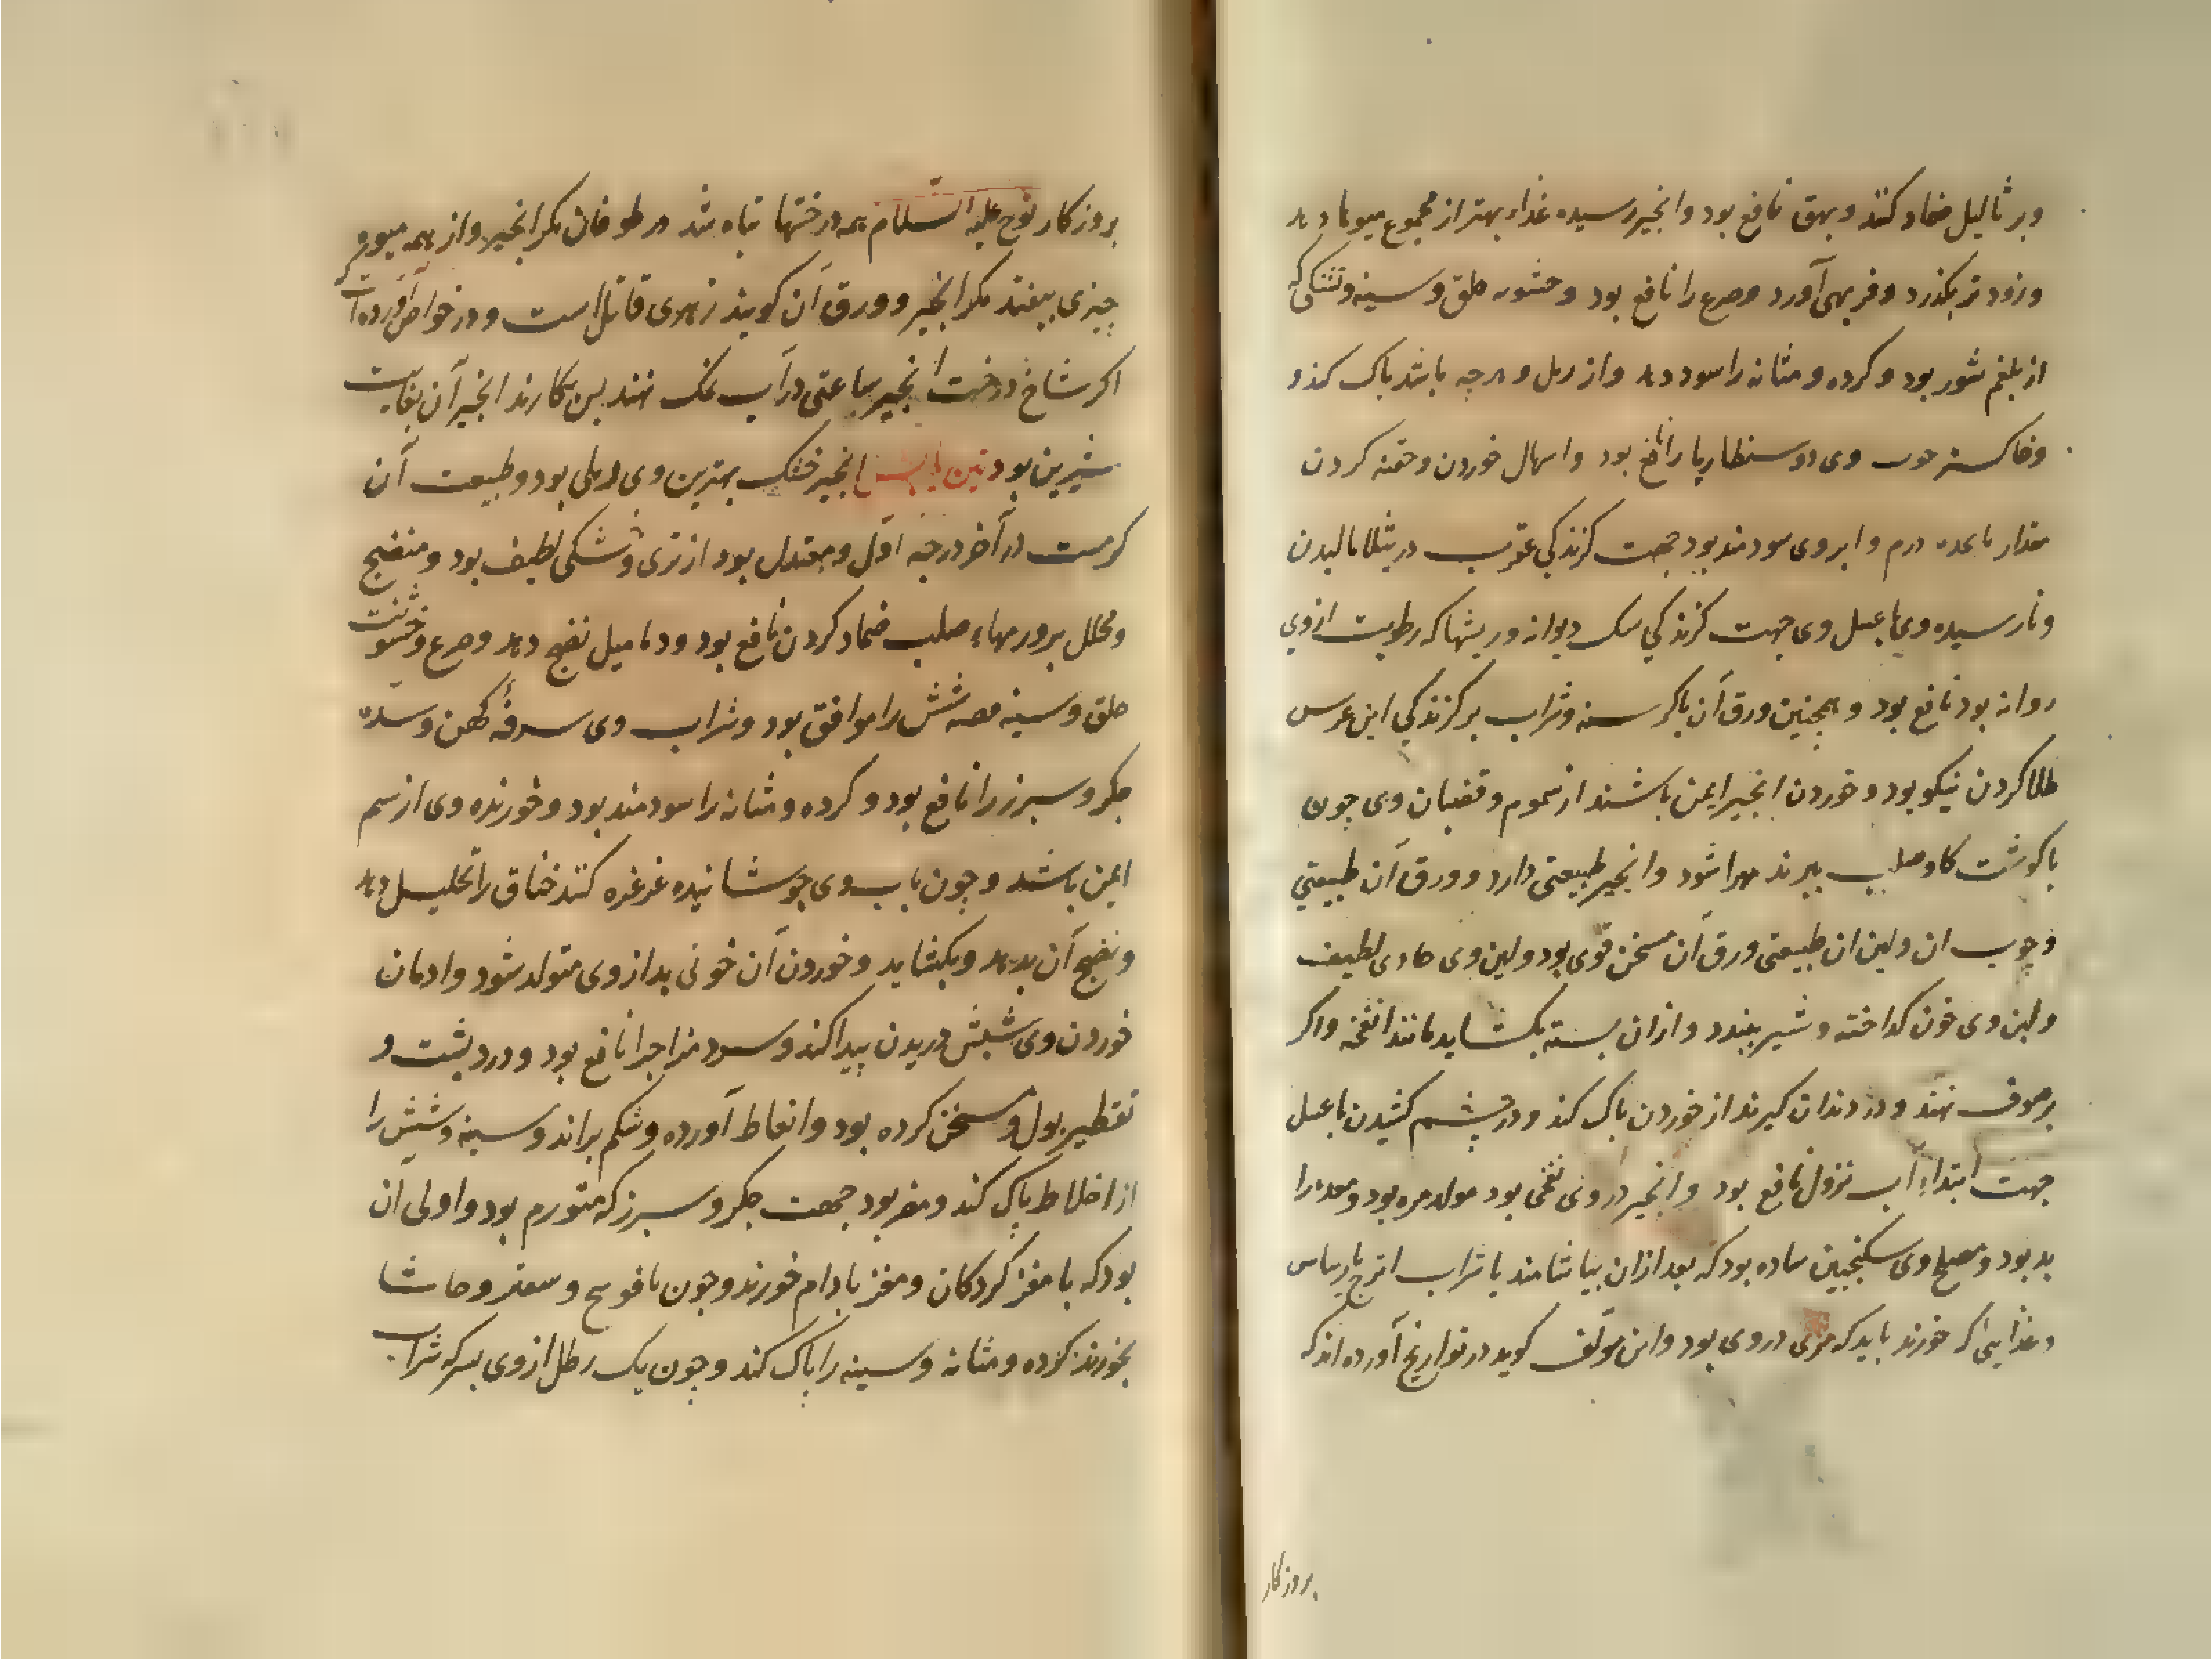 وبر ثالیل ضماد کنند وبهق نافع بود وانجیر رسیده غذاء بهتر از مجموع میوها دهد
وزودتر بگذرد وفربهی آورد وصرع را نافع بود وخشونه حلق وسینه وتشنگی که
از بلغم شور بود وکرده ومثانه را سود دهد واز رمل وهرچه باشد پاک کند و
وخاکستر چوب وی دوسنطاریا را نافع بود واسهال خوردن وحقنه کردن
مقدار درم وابروی سودمند بود جهت کزندکی عقرب در مالیدن
ونارسیده وی با عسل وی جهت کزندکی سک دیوانه وریشها که رطوبت ازوی
روانه بود نافع بود وهمچنین ورق آن با کرسنه وشراب بر کزندکی ابن عرس
طلا کردن نیکو بود وخوردن انجیر ایمن باشند از سموم وقضبان وی چون
با کوشت کاو صلب بپزند مهرا شود وانجیر طبیعتی دارد وورق آن طبیعتی
وچوب ان ولبن ان طبیعتی ورق آن مسخن قوی بود ولبن وی حادی لطیف
ولبن وی خون کداخته وشیر ببندد وازان بسته بکشاید مانند انفخه واکر
بر صوف نهند ودر دندان کیرند از خوردن پاک کند ودر چشم کشیدن با عسل
جهت ابتداء آب نزول نافع بود وانجیر دروی نفخی بود مولد مره بود ومعده را
بد بود ومصلح وی سکنجبین ساده بود که بعد ازان بیاشامند یا شراب اترج یا ریباس
وغذایی که خورند باید که مری دروی بود وابن مولف کوید در تواریخ آورده اند که
بروزکار
بروزکار نوح علیه السلام همه درختها تباه شد در طوفان مکر انجیر واز همه میوه
چیزی بیفتد مکر انجیر وورق آن کویند زهری قاتل است ودر خواص آورده است
اکر شاخ درخت انجیر ساعتی در آب نمک نهند پس بکارند انجیر آن بغایت
شیرین بود تین یابس انجیر خشک بهترین وی بود وطبیعت آن
کرمست در آخر درجه اول ومعتدل بود از تری وخشکی لطیف بود ومنضج
ومحلل بر ورمهاء صلب ضماد کردن نافع بود ودمامیل نضج دهد وصرع وخشونت
حلق وسینه قصبه شش را موافق بود وشراب وی سرفه کهن وسده
جکر وسبرز را نافع بود وکرده ومثانه را سودمند بود وخورنده وی از سم
ایمن باشد وچون باب وی جوشانیده غرغره کنند خناق را تحلیل دهد
ونضج آن بدهد وبکشاید وخوردن آن خونی بد ازوی متولد شود وادمان
خوردن وی شپش در بدن پیدا کند وسرد مزاجرا نافع بود ودرد پشت و
تقطیر بول ومسخن کرده بود وانعاظ آورده وشکم براند وسینه وشش را
از اخلاط پاک کند ومضر بود جهت جکر وسبرز که متورم بود واولی آن
بود که با مغز کردکان ومغز بادام خورند وچون با فودنج وسعتر وحاشا
بخورند کرده ومثانه وسینه را پاک کند وچون یک رطل ازوی بسرکه شراب